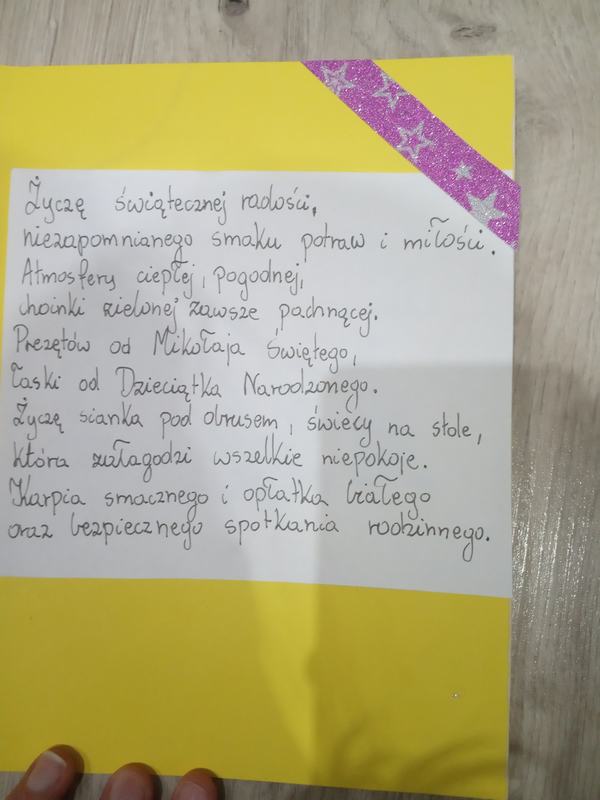 Życzę świątecznej radości,
niezapomnianego smaku potraw i miłości.
Atmosfery ciepłej, pogodnej,
choinki zielonej zawsze pachnącej.
Prezętów od Mikołaja Świętego,
łaski od Dzieciątka Narodzonego.
Życzę sianka pod obrusem, świecy na stole,
która załagodzi wszelkie niepokoje.
Karpia smacznego i opłatka białego
oraz bezpiecznego spotkania rodzinnego.